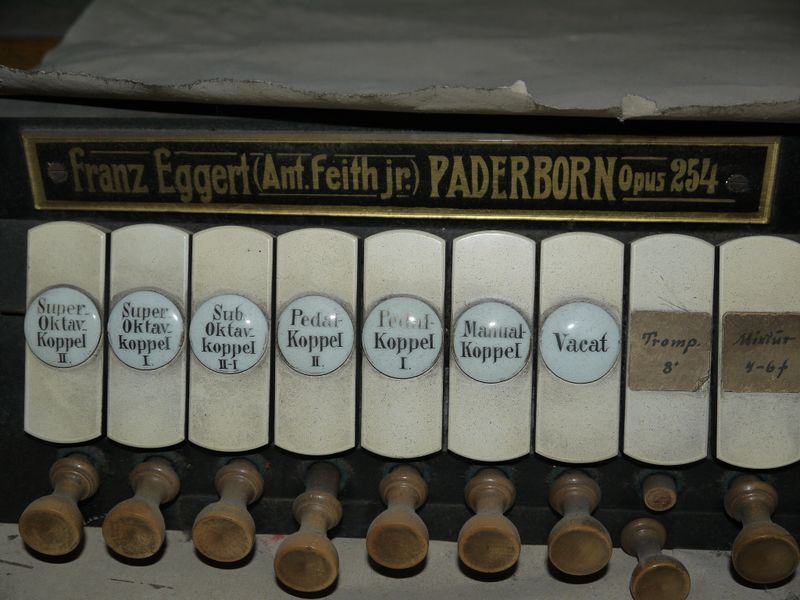 Franz Eggert (Ant. Feith jr.) PADERBORN Opus 254
Super-
Oktav-
Koppel
II.
Super-
Oktav-
koppel
I.
Sub-
Oktav-
koppel
II-I
Pedal-
Koppel
II.
Pedal-
Koppel
I.
Manual-
Koppel
Vacat
Tromp.
8'
Mixtur
4-6f